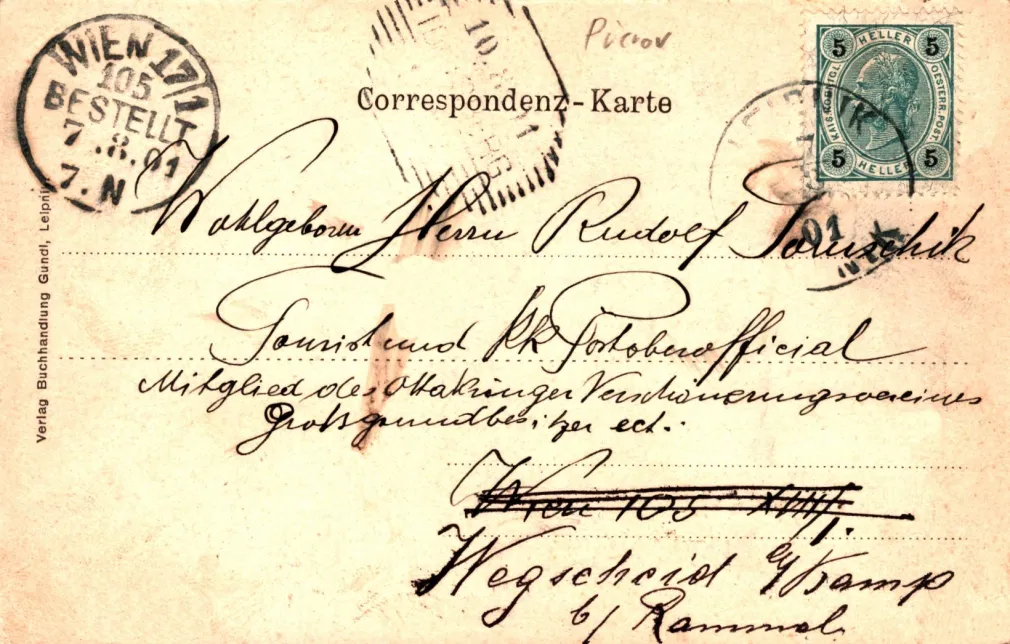 WIEN 17/1
105
BESTELLT
7.8.01
7. N
10.
Correspondenz-Karte
5 HELLER 5
KAIS. KÖNIGTGL.
OESTERR. POST.
5 HELLER 5
01
Wohlgeboren Herrn Rudolf
Tourist und kk Postoberofficial
Mitglied des Ottakringer Verschönerungsvereines
Großgrundbesitzer ect.
Wien 105 XVIII/1.
Wegscheid a/Kamp
b/ Rammel
Verlag Buchhandlung Gundl, Leipnik